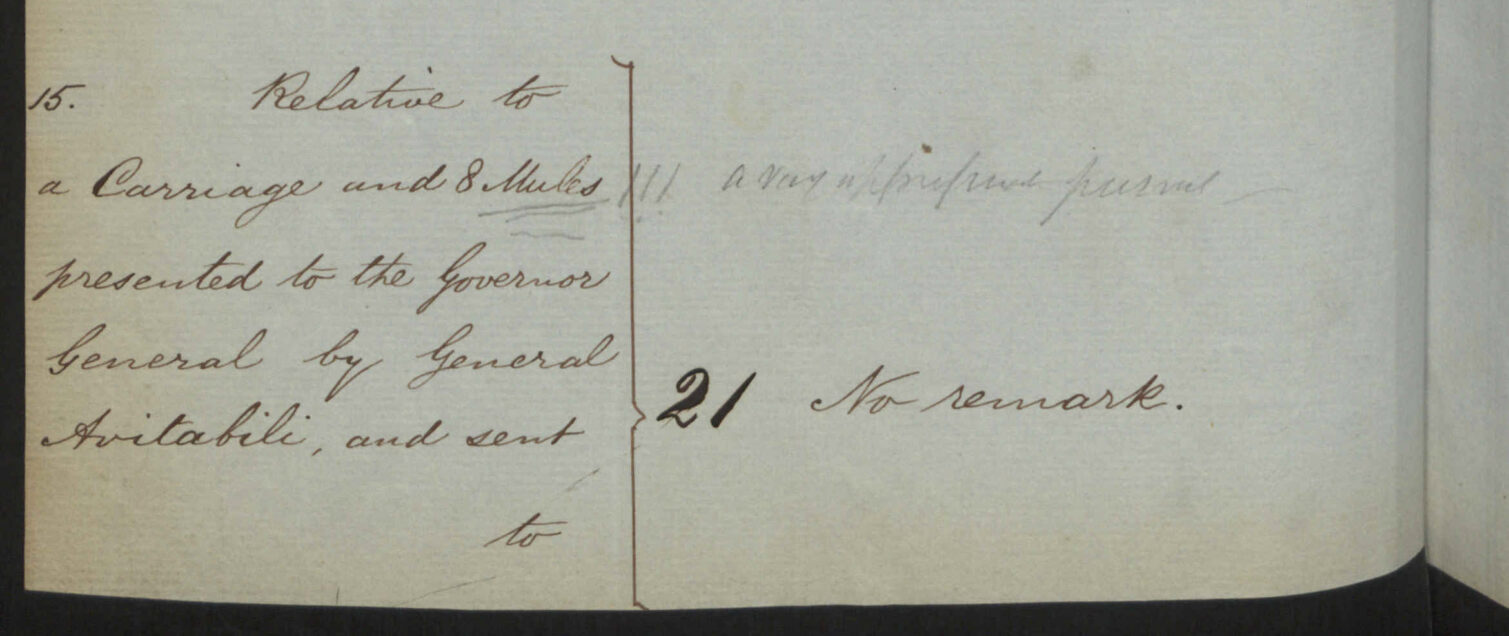 15. Relative to
a Carriage and 8 Mules !!! a very appropriate present
presented to the Governor
General by General
Avitabili, and sent
21 No remark.
to